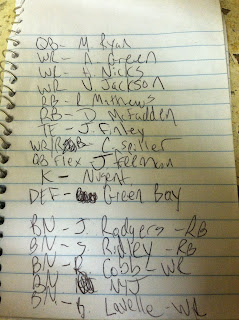 QB- M. Ryan
WR- A. Green
WR- H Nicks
WR V. Jackson
RB- R Mathews
RB- D. McFadden
TE- J. Finley
WR/RB- C. Spiller
QB Flex J Freeman
K- Nugent
DEF- Green Bay
BN- J. Rodgers -RB
BN- S. Ridley -RB
BN- R. Cobb -WR
BN NYJ
BN- B. Lavelle -WR